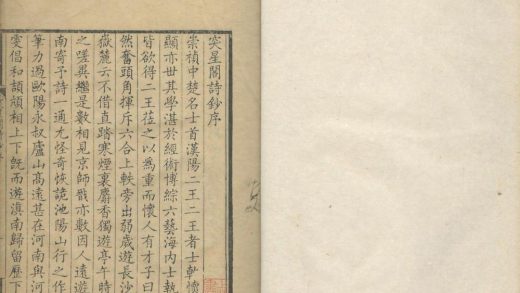 突星閣詩鈔序
崇禎中楚名士首漢陽二王二王者士乾懷人世
顯亦世其學湛於經術博綜六藝海内士執
皆欲得二王莅之以為重而懷人有才子曰
然奮頭角揮斥六合上軼旁出弱歲遊長沙
嶽麓云不借直踏寒煙裏麝香獨遊亭午時
之嗟異繼是數相見京師戩亦數因人遠遊
南寄予詩一通尤怪奇恢詭池陽山行之作
筆力過歐陽永叔廬山高遠甚在河南與河
雯倡和頡頏相上下旣而遊滇南歸留歷下